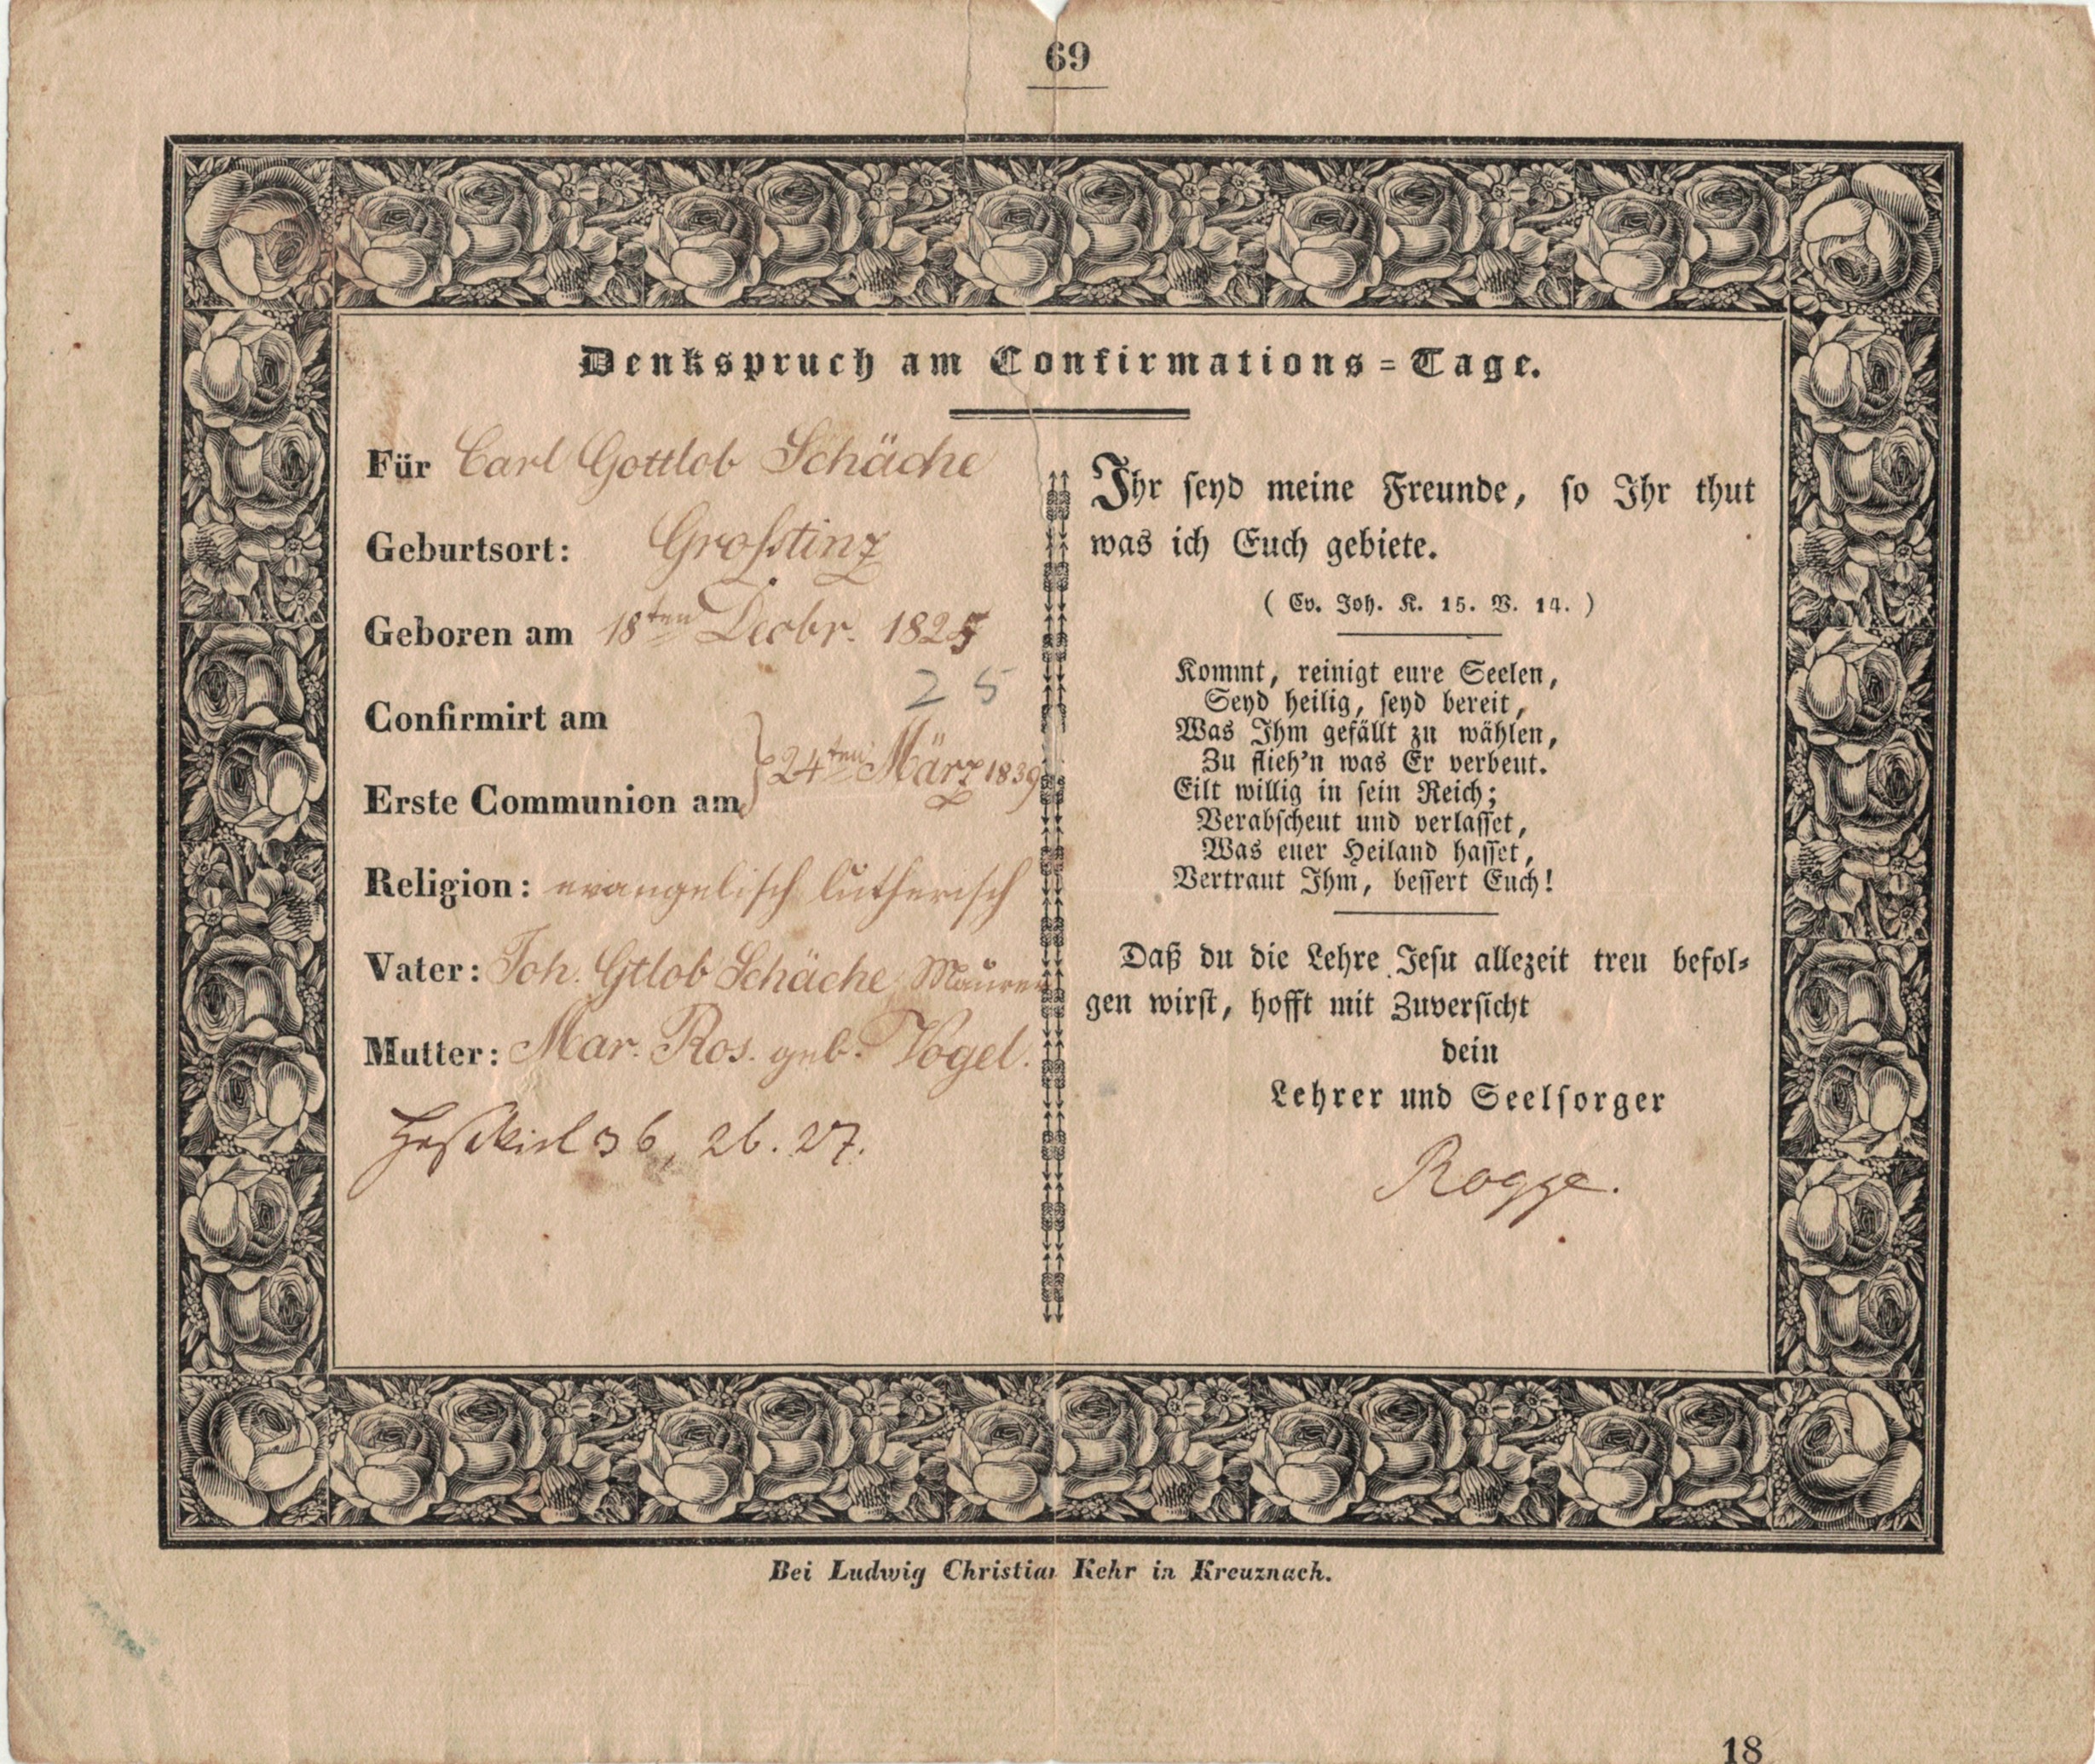 69
Denkspruch am Confirmations=Tage.
Für Carl Gottlob Schäche
Geburtsort: Großtinz
Geboren am 18ten Decbr. 1825
25
Confirmirt am
24ten März 1839
Erste Communion am
Religion: evangelisch lutherisch
Vater: Joh. Gtlob Schäche, Maurer
Mutter: Mar. Ros. geb. Vogel.
Hesekiel 36, 26. 27.
Ihr seyd meine Freunde, so Ihr thut
was ich Euch gebiete.
( Ev. Joh. K. 15. V. 14. )
Kommt, reinigt eure Seelen,
Seyd heilig, seyd bereit,
Was Ihm gefällt zu wählen,
Zu flieh'n was Er verbeut.
Eilt willig in sein Reich;
Verabscheut und verlasset,
Was euer Heiland hasset,
Vertraut Ihm, bessert Euch!
Daß du die Lehre Jesu allezeit treu befol=
gen wirst, hofft mit Zuversicht
dein
Lehrer und Seelsorger
Rogge.
Bei Ludwig Christian Kehr in Kreuznach.
18